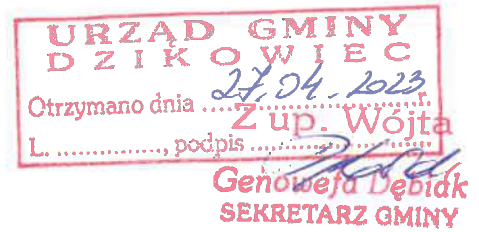 URZĄD GMINY
DZIKOWIEC
Otrzymano dnia ..27.04.2023..r.
Z up. Wójta
L. .............., podpis ....................
Genowefa Dębiak
SEKRETARZ GMINY